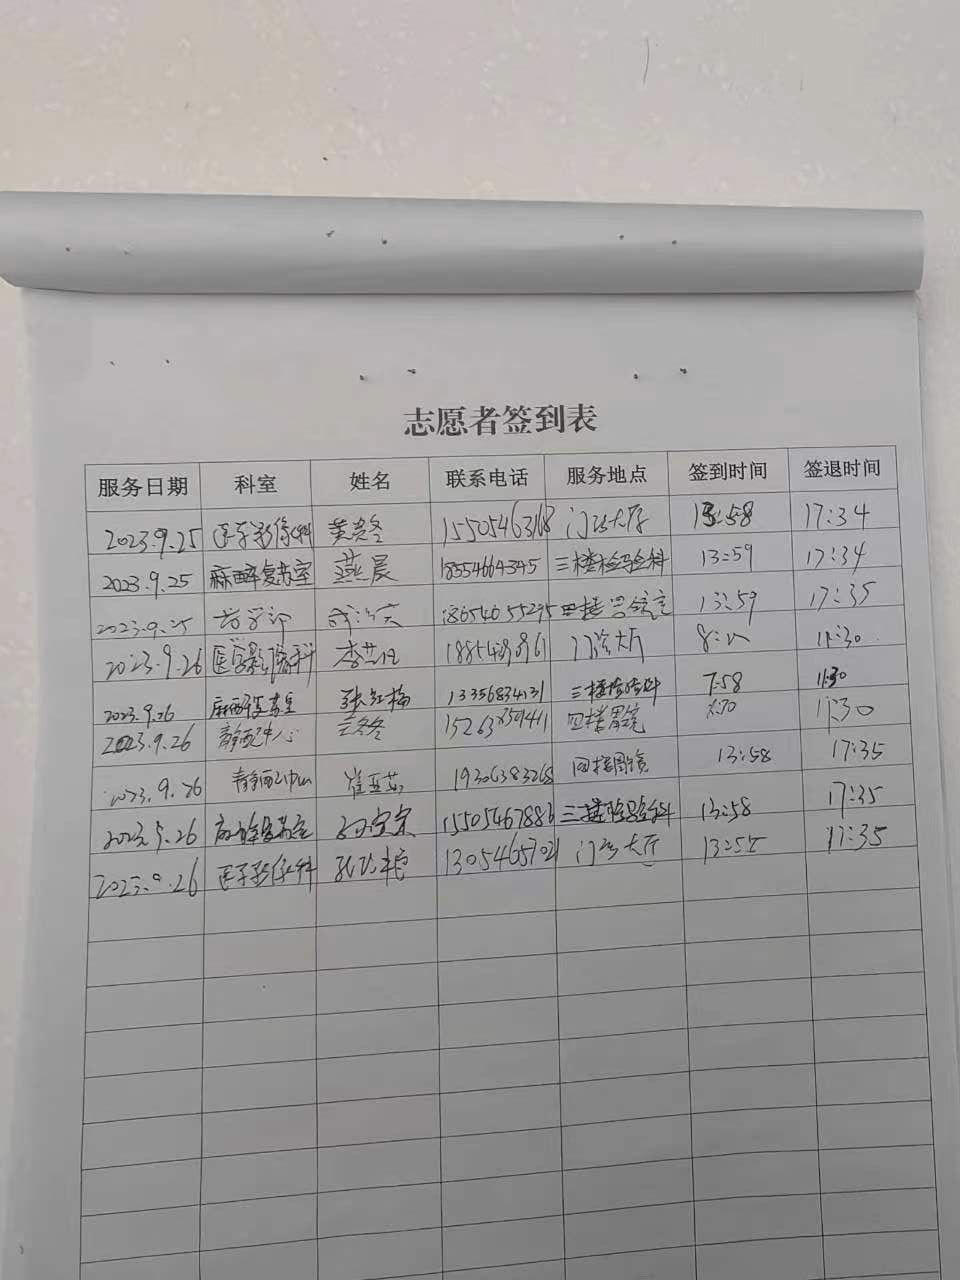 志愿者签到表
服务日期 科室 姓名 联系电话 服务地点 签到时间 签退时间
2023.9.25 医学影像科 黄 冬 15505463168 门诊大厅 13:58 17:34
2023.9.25 麻醉复苏室 燕晨 18554664345 三楼检验科 13:59 17:34
2023.9.25 18654655295 四楼 13:59 17:35
2023.9.26 医学影像科 李 门诊大厅 11:30
2023.9.26 麻醉复苏室 张红梅 13356834131 三楼检验科 7:58 11:30
2023.9.26 静配中心 兰冬冬 15263859411 四楼胃镜 11:30
2023.9.26 静配中心 崔亚茹 19306383268 四楼胃镜 13:58 17:35
2023.9.26 麻醉复苏室 15505467886 三楼检验科 13:58 17:35
2023.9.26 医学影像科 门诊大厅 13:55 17:35